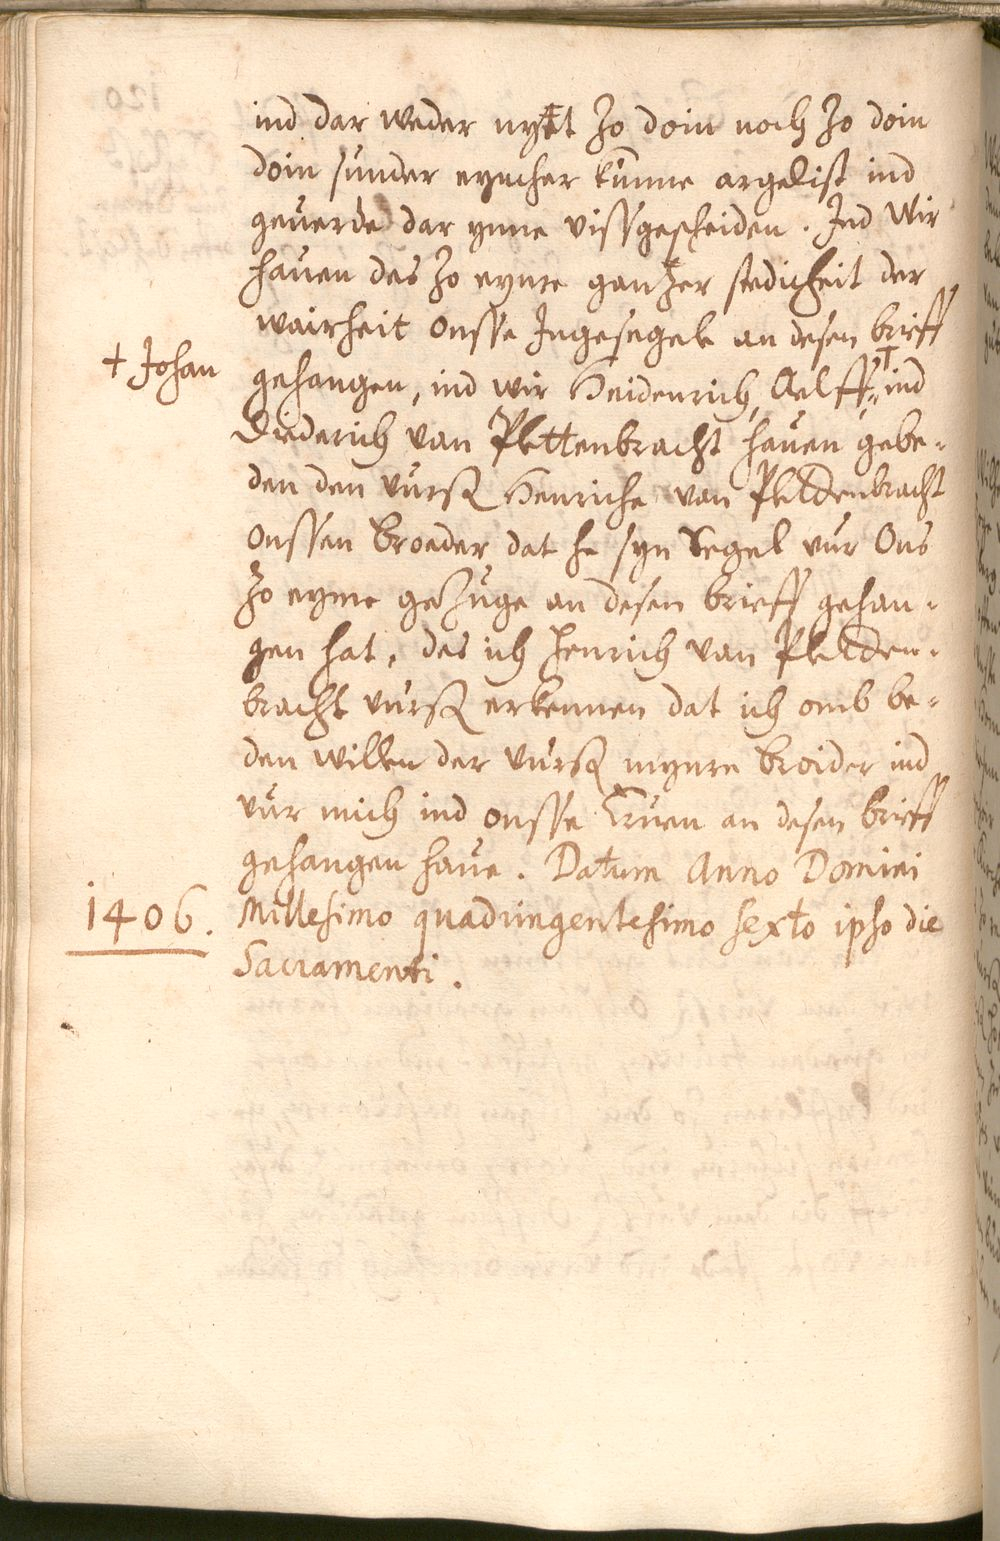 ind dar weder nyet zo doin noch zo doin
doin sunder eyncher kunne argelist ind
geuerde dar ynne vissgescheiden. Ind Wir
hauen des zo eynre gantzer stedicheit der
wairheit onsse Ingesegele an desen brieff
gehangen, ind wir Heidenrich, Aelff, † ind
† Johan
Diederich van Plettenbracht hauen gebe-
den den vursz Henriche van Plettenbracht
onssen broeder dat he syn Segel vur Ons
zo eyme gezuge an desen brieff gehan-
gen hat, des ich Henrich van Pletten-
bracht vursz erkennen dat ich omb be-
den willen der vursz mynre broider ind
vur mich ind onsse Eruen an desen brieff
gehangen haue. Datum Anno Domini
1406. Millesimo quadringentesimo sexto ipso die
Sacramenti.